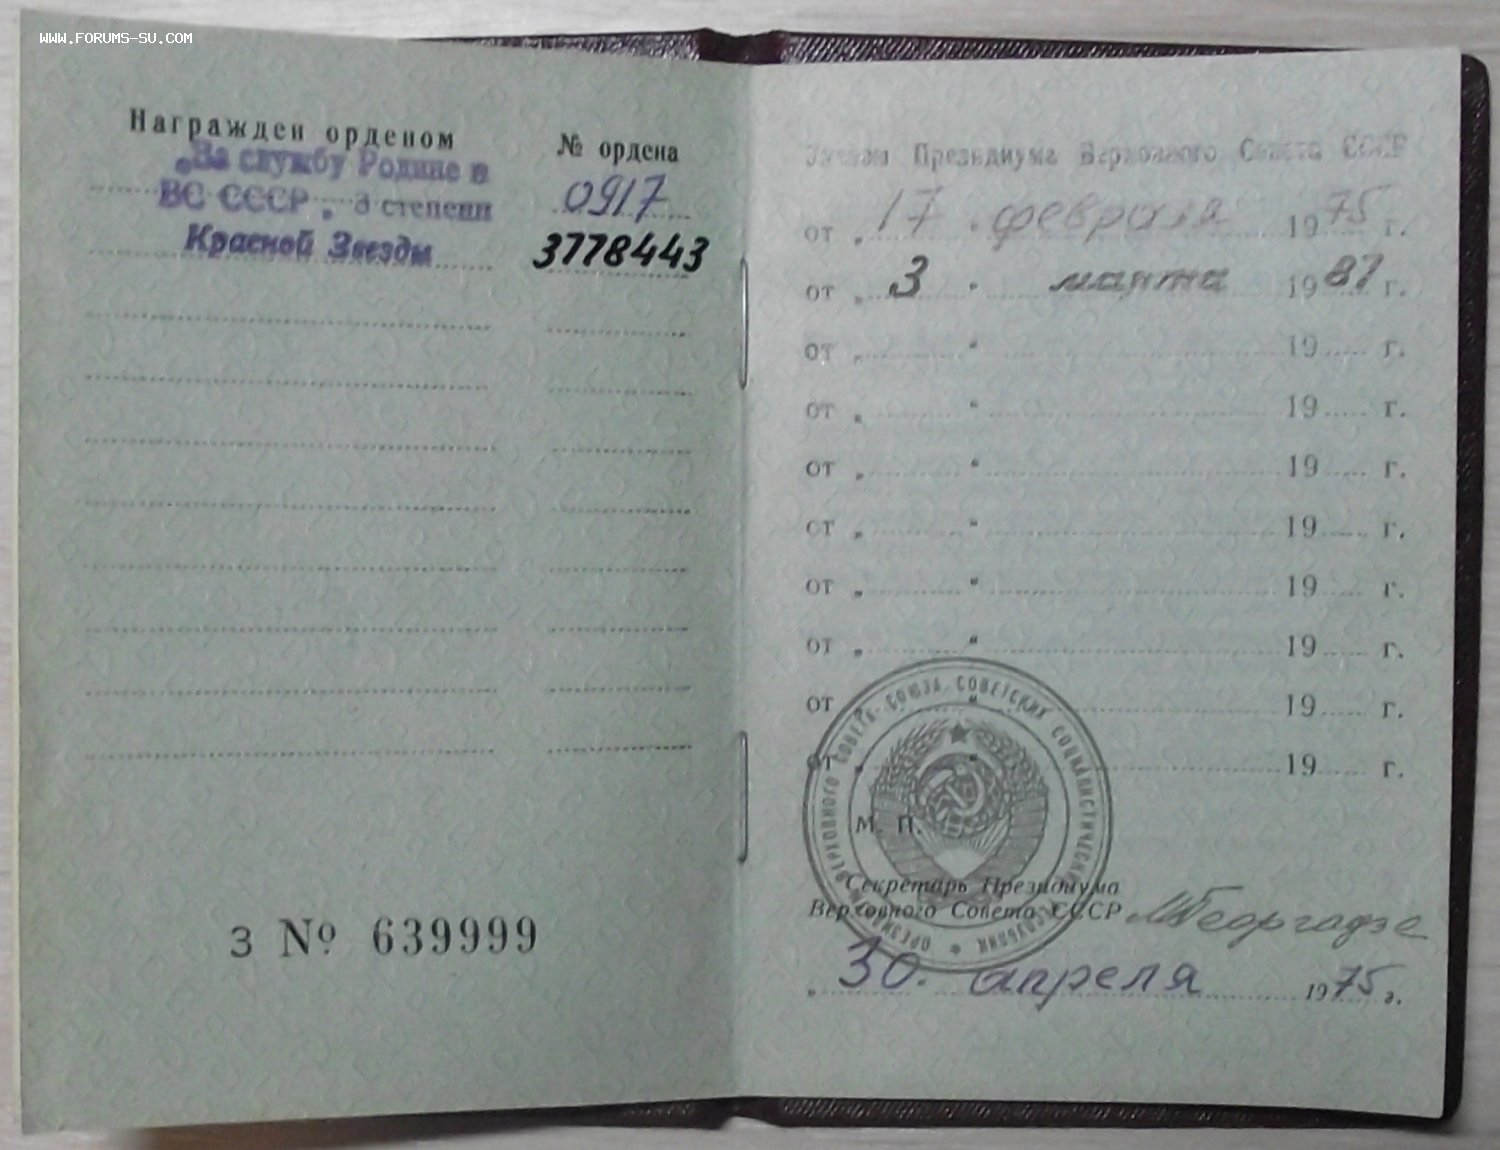 WWW.FORUMS-SU.COM
Награжден орденом
№ ордена
„За службу Родине в
ВС СССР„ 3 степени
0917
Красной Звезды
3778443
З № 639999
Указом Президиума Верховного Совета СССР
от „ 17 “ февраля 1975 г.
от „ 3 “ марта 1987 г.
от „ “ 19 г.
от „ “ 19 г.
от „ “ 19 г.
от „ “ 19 г.
от „ “ 19 г.
от „ “ 19 г.
от „ “ 19 г.
от „ “ 19 г.
М. П.
ПРЕЗИДИУМ ВЕРХОВНОГО СОВЕТА СОЮЗА СОВЕТСКИХ СОЦИАЛИСТИЧЕСКИХ РЕСПУБЛИК
Секретарь Президиума
Верховного Совета СССР
МГеоргадзе
„ 30. апреля 1975 г.